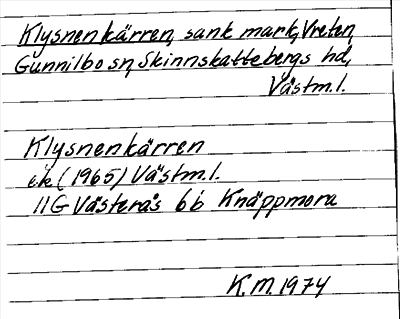 Klysnenkärren, sank mark, Vreten,
Gunnilbo sn, Skinnskattebergs hd,
Västm.l.
Klysnenkärren
ek (1965) Västm.l.
11G Västerås 6b Knäppmora
K.M. 1974